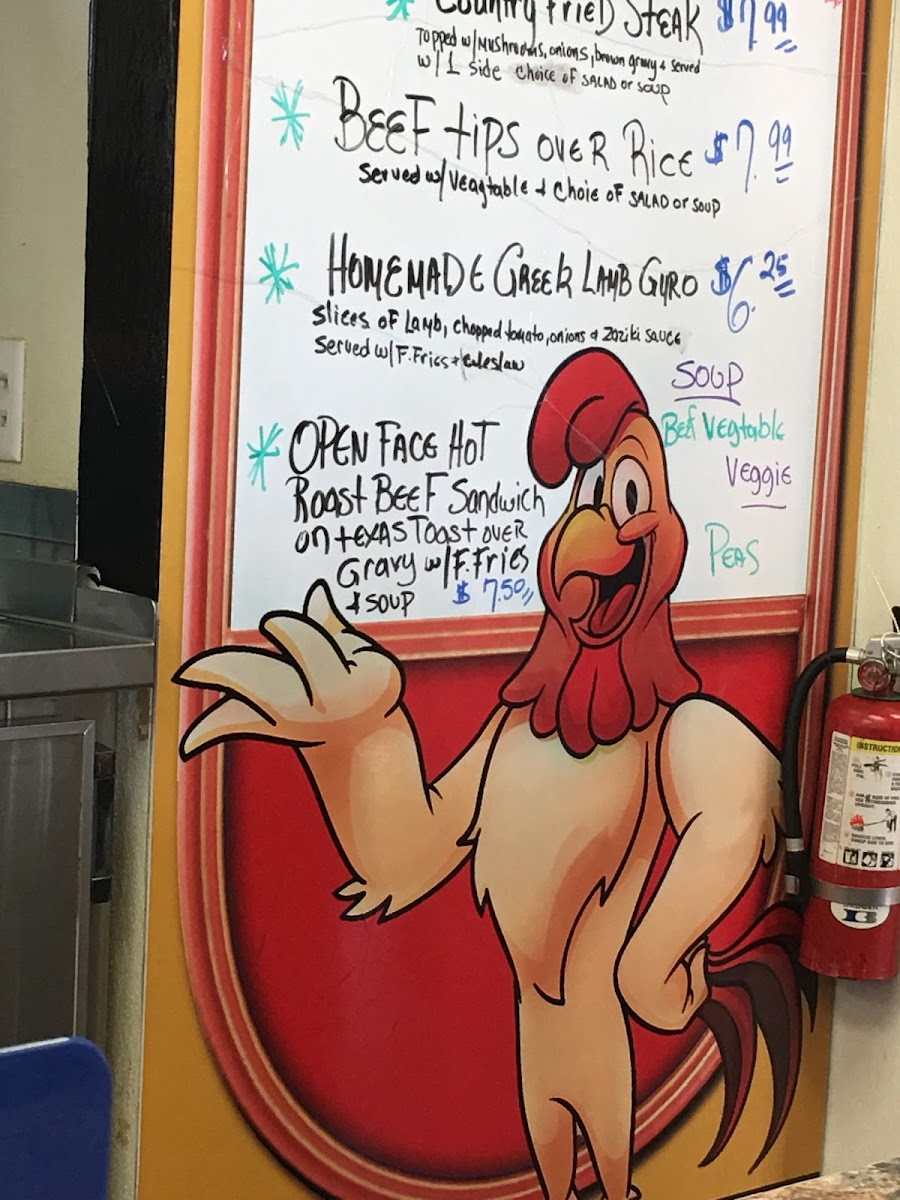 Country Fried Steak $7.99
Topped w/Mushrooms, onions, brown gravy & served
w/1 side choice of SALAD or soup
* Beef tips over Rice $7.99
Served w/ Veagtable & Choie of SALAD or soup
* Homemade Greek Lamb Gyro $6.25
Slices of Lamb, chopped tomato, onions & Zaziki sauce
Served w/F.Fries & coleslaw
SOUP
Beef Vegtable
Veggie
Peas
* Open Face Hot
Roast Beef Sandwich
on texas Toast over
Gravy w/F.Fries
& soup $7.50
INSTRUCTIO